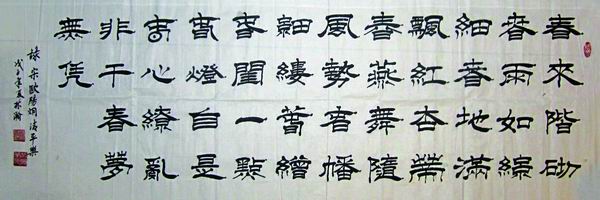 春來階砌
春雨如線
細春地滿
飄紅杏蒂
春燕舞隨
風勢春幡
細縷春繒
春閨一點
春燈自是
春心繚亂
非干春夢
無凭
錄宋歐陽炯清平樂
戊子年夏